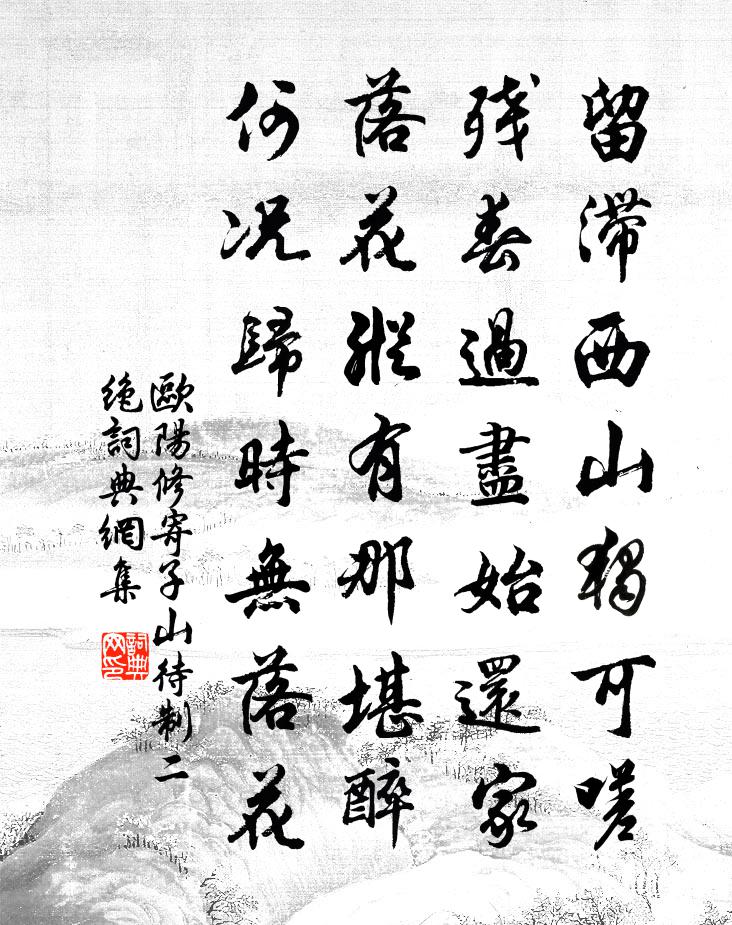 留滯西山獨可嗟
殘春過盡始還家
落花縱有那堪醉
何况歸時無落花
歐陽修寄子山待制二
絕詞典網集
詞典
网印